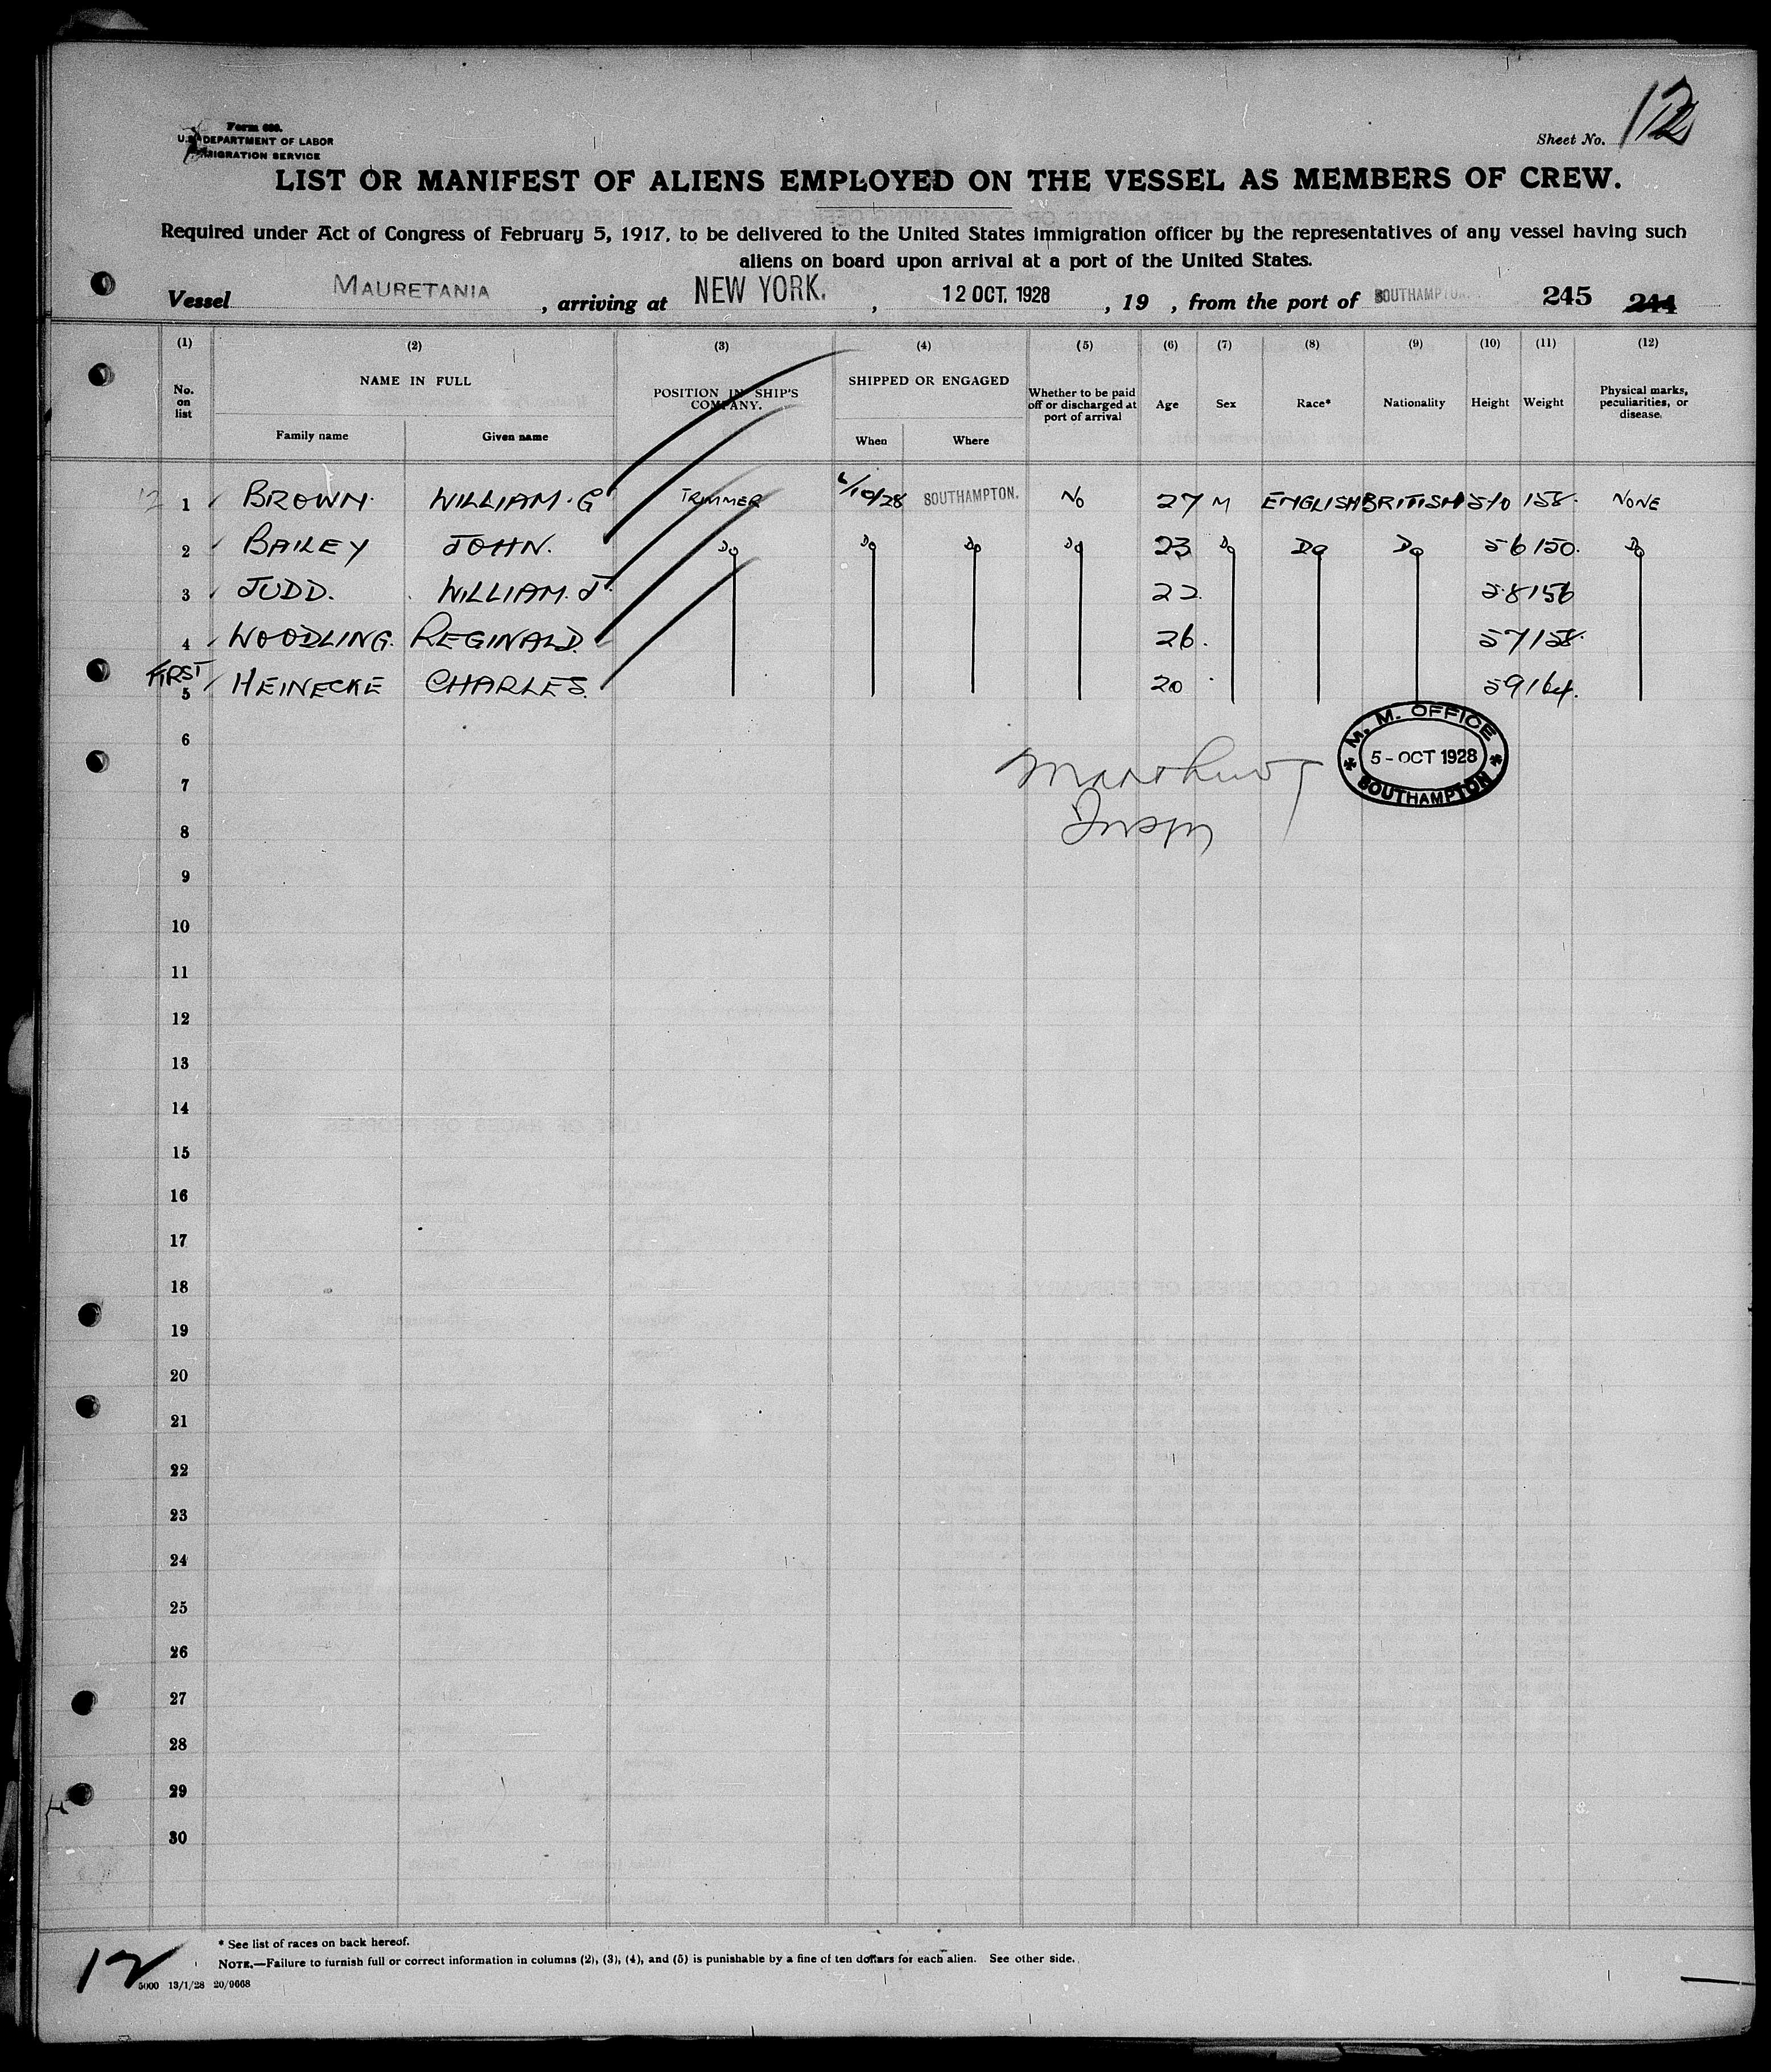 Form 680.
U.S. DEPARTMENT OF LABOR
IMMIGRATION SERVICE
Sheet No. 12
LIST OR MANIFEST OF ALIENS EMPLOYED ON THE VESSEL AS MEMBERS OF CREW.
Required under Act of Congress of February 5, 1917, to be delivered to the United States immigration officer by the representatives of any vessel having such
aliens on board upon arrival at a port of the United States.
Vessel MAURETANIA, arriving at NEW YORK., 12 OCT. 1928, 19 , from the port of SOUTHAMPTON. 245 244
(1) (2) (3) (4) (5) (6) (7) (8) (9) (10) (11) (12)
No. on list NAME IN FULL POSITION IN SHIP'S COMPANY. SHIPPED OR ENGAGED Whether to be paid off or discharged at port of arrival Age Sex Race* Nationality Height Weight Physical marks, peculiarities, or disease.
Family name Given name When Where
12 1 BROWN. WILLIAM. G TRIMMER 6/10/28 SOUTHAMPTON. NO 27 M ENGLISH BRITISH 5/10 158. NONE
2 BAILEY JOHN. Do Do Do Do 23 Do Do Do 5 6 150. Do
3 JUDD. WILLIAM. J. 22 5.8 156
4 WOODLING. REGINALD. 26. 5 7 158.
FIRST 5 HEINECKE CHARLES. 20 5 9 164.
M. M. OFFICE
5 - OCT 1928
SOUTHAMPTON
6
7
8
9
10
11
12
13
14
15
16
17
18
19
20
21
22
23
24
25
26
27
28
29
30
* See list of races on back hereof.
NOTE.—Failure to furnish full or correct information in columns (2), (3), (4), and (5) is punishable by a fine of ten dollars for each alien. See other side.
12
5000 13/1/28 20/9668